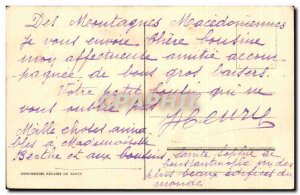 Des Montagnes Macedoniennes
Je vous envoie Chère Cousine
mon affectueuse amitié accom
pagnée de bons gros baisers.
Votre petit qui ne
vous oublie pas
Henry
Mille choses aima
bles à Mademoiselle
Berthe et aux
Sainte Sophie de
Constantinople un des
plus beaux édifices du
monde